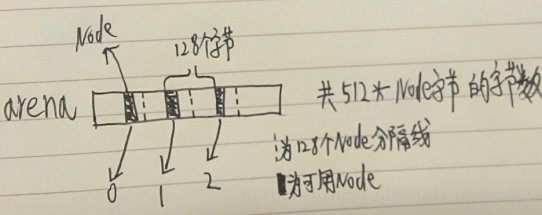 Node
128个字节
arena
共512*Node字节的字节数
为128个Node分隔线
为可用Node
0 1 2